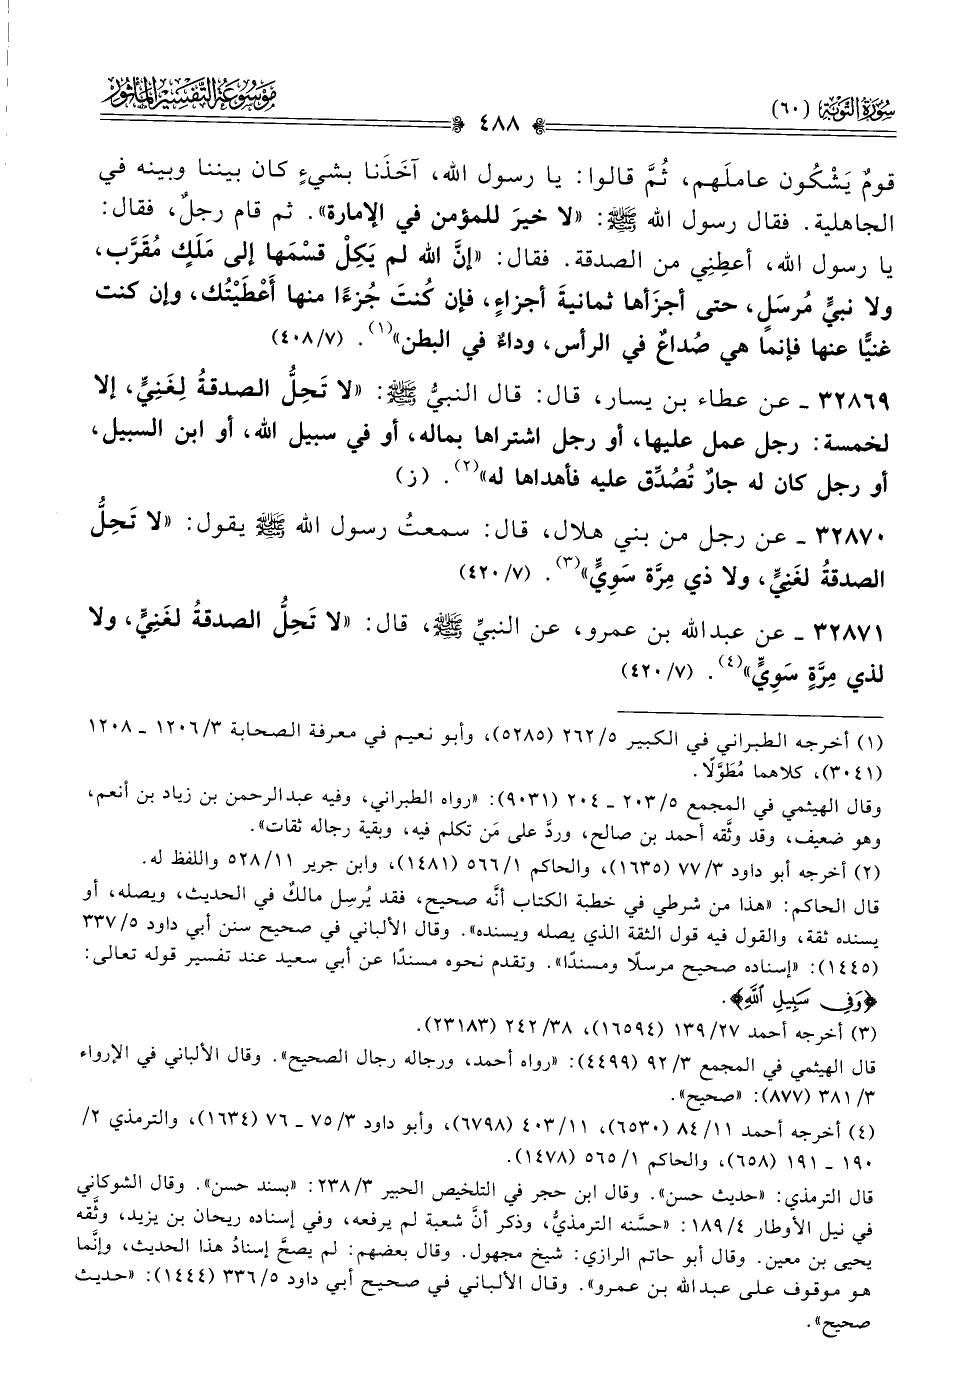 سُورَةُ التَّوْبَةِ (٦٠)
٤٨٨
مَوْسُوعَةُ التَّفْسِيرِ المَأْثُورِ
قومٌ يَشْكُون عاملَهم، ثُمَّ قالوا: يا رسول الله، آخَذَنا بشيءٍ كان بيننا وبينه في
الجاهلية. فقال رسول الله ﷺ: «لا خيرَ للمؤمن في الإمارة». ثم قام رجلٌ، فقال:
يا رسول الله، أعطِني من الصدقة. فقال: «إنَّ الله لم يَكِلْ قسْمَها إلى مَلَكٍ مُقَرَّب،
ولا نبيٍّ مُرسَلٍ، حتى أجزَأها ثمانيةَ أجزاءٍ، فإن كُنتَ جُزءًا منها أَعْطَيْتُك، وإن كنت
غنيًّا عنها فإنما هي صُداعٌ في الرأس، وداءٌ في البطن»(١). (٤٠٨/٧)
٣٢٨٦٩ ـ عن عطاء بن يسار، قال: قال النبيُّ ﷺ: «لا تَحِلُّ الصدقةُ لِغَنِيٍّ، إلا
لخمسة: رجل عمل عليها، أو رجل اشتراها بماله، أو في سبيل الله، أو ابن السبيل،
أو رجل كان له جارٌ تُصُدِّق عليه فأهداها له»(٢). (ز)
٣٢٨٧٠ ـ عن رجل من بني هلال، قال: سمعتُ رسول الله ﷺ يقول: «لا تَحِلُّ
الصدقةُ لغَنِيٍّ، ولا ذي مِرَّة سَوِيٍّ»(٣). (٤٢٠/٧)
٣٢٨٧١ ـ عن عبدالله بن عمرو، عن النبيِّ ﷺ، قال: «لا تَحِلُّ الصدقةُ لغَنِيٍّ، ولا
لذي مِرَّةٍ سَوِيٍّ»(٤). (٤٢٠/٧)
(١) أخرجه الطبراني في الكبير ٥/ ٢٦٢ (٥٢٨٥)، وأبو نعيم في معرفة الصحابة ٣/ ١٢٠٦ ـ ١٢٠٨
(٣٠٤١)، كلاهما مُطَوَّلًا.
وقال الهيثمي في المجمع ٥/ ٢٠٣ ـ ٢٠٤ (٩٠٣١): «رواه الطبراني، وفيه عبدالرحمن بن زياد بن أنعم،
وهو ضعيف، وقد وثَّقه أحمد بن صالح، وردَّ على مَن تكلم فيه، وبقية رجاله ثقات».
(٢) أخرجه أبو داود ٣/ ٧٧ (١٦٣٥)، والحاكم ١/ ٥٦٦ (١٤٨١)، وابن جرير ١١/ ٥٢٨ واللفظ له.
قال الحاكم: «هذا من شرطي في خطبة الكتاب أنَّه صحيح، فقد يُرسِل مالكٌ في الحديث، ويصله، أو
يسنده ثقة، والقول فيه قول الثقة الذي يصله ويسنده». وقال الألباني في صحيح سنن أبي داود ٥/ ٣٣٧
(١٤٤٥): «إسناده صحيح مرسلًا ومسندًا». وتقدم نحوه مسندًا عن أبي سعيد عند تفسير قوله تعالى:
﴿وَفِي سَبِيلِ ٱللَّهِ﴾.
(٣) أخرجه أحمد ٢٧/ ١٣٩ (١٦٥٩٤)، ٣٨/ ٢٤٢ (٢٣١٨٣).
قال الهيثمي في المجمع ٣/ ٩٢ (٤٤٩٩): «رواه أحمد، ورجاله رجال الصحيح». وقال الألباني في الإرواء
٣/ ٣٨١ (٨٧٧): «صحيح».
(٤) أخرجه أحمد ١١/ ٨٤ (٦٥٣٠)، ١١/ ٤٠٣ (٦٧٩٨)، وأبو داود ٣/ ٧٥ ـ ٧٦ (١٦٣٤)، والترمذي ٢/
١٩٠ ـ ١٩١ (٦٥٨)، والحاكم ١/ ٥٦٥ (١٤٧٨).
قال الترمذي: «حديث حسن». وقال ابن حجر في التلخيص الحبير ٣/ ٢٣٨: «بسند حسن». وقال الشوكاني
في نيل الأوطار ٤/ ١٨٩: «حسَّنه الترمذيُّ، وذكر أنَّ شعبة لم يرفعه، وفي إسناده ريحان بن يزيد، وثَّقه
يحيى بن معين. وقال أبو حاتم الرازي: شيخ مجهول. وقال بعضهم: لم يصحَّ إسنادُ هذا الحديث، وإنَّما
هو موقوف على عبدالله بن عمرو». وقال الألباني في صحيح أبي داود ٥/ ٣٣٦ (١٤٤٤): «حديث
صحيح».